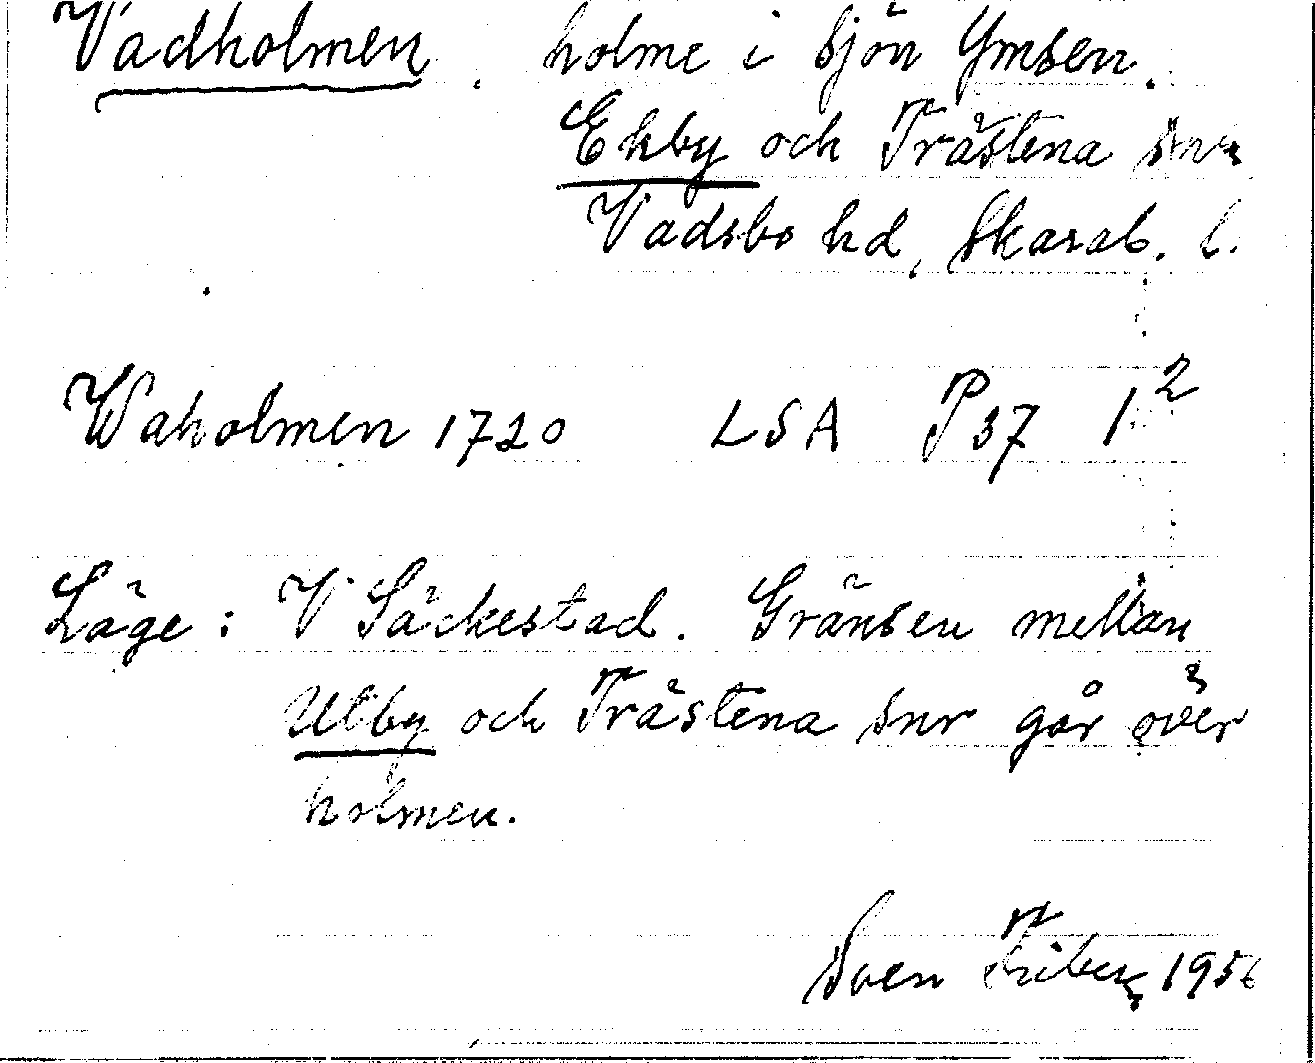 Vadholmen, holme i sjön Ymsen.
Ekby och Trästena snr
Vadsbo hd, Skarab. l.
Waholmen 1720 LSA P37 1²
Läge: V Säckestad. Gränsen mellan
Utby och Trästena snr går över
holmen.
Sven Friberg 1956